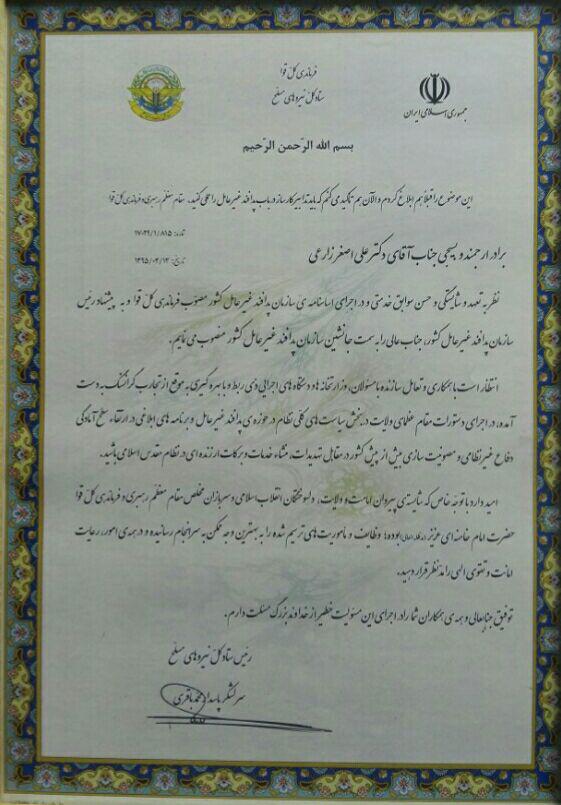 فرماندهی کل قوا
ستاد کل نیروهای مسلح
جمهوری اسلامی ایران
بسم الله الرّحمن الرّحیم
این موضوع را قبلاً هم ابلاغ کردم و الان هم تأکید می کنم که باید تدابیر کارساز در باب پدافند غیرعامل را عملی کنید. مقام معظم رهبری و فرماندهی کل قوا
تاریخ: ۱۳۹۵/۰۴/۱۳
برادر ارجمند و بسیجی جناب آقای دکتر علی اصغر زارعی
نظر به تعهد و شایستگی و حسن سوابق خدمتی و در اجرای اساسنامه ی سازمان پدافند غیرعامل کشور مصوب فرماندهی کل قوا و به پیشنهاد رئیس
سازمان پدافند غیرعامل کشور، جناب عالی را به سمت جانشین سازمان پدافند غیرعامل کشور منصوب می نمایم.
انتظار است با همکاری و تعامل سازنده با مسئولان، وزارتخانه ها، دستگاه های اجرایی ذی ربط و با بهره گیری به موقع از تجارب گرانسنگ به دست
آمده، در اجرای دستورات مقام عظمای ولایت در بخش سیاست های کلی نظام در حوزه ی پدافند غیرعامل و برنامه های ابلاغی در ارتقاء سطح آمادگی
دفاع غیرنظامی و مصونیت سازی بیش از پیش کشور در مقابل تهدیدات، منشاء خدمات و برکات ارزنده ای در نظام مقدس اسلامی باشید.
امید دارد با توجه خاص که شایسته ی پیروان امامت و ولایت، دلسوختگان انقلاب اسلامی و سربازان مخلص مقام معظم رهبری و فرماندهی کل قوا
حضرت امام خامنه ای عزیز بوده؛ وظایف و مأموریت های ترسیم شده را به بهترین وجه ممکن به سرانجام رسانیده و در همه ی امور، رعایت
امانت و تقوی الهی را مدنظر قرار دهید.
توفیق جنابعالی و همه ی همکاران شما را در اجرای این مسئولیت خطیر از خداوند بزرگ مسئلت دارم.
رئیس ستاد کل نیروهای مسلح
سرلشکر پاسدار محمد باقری